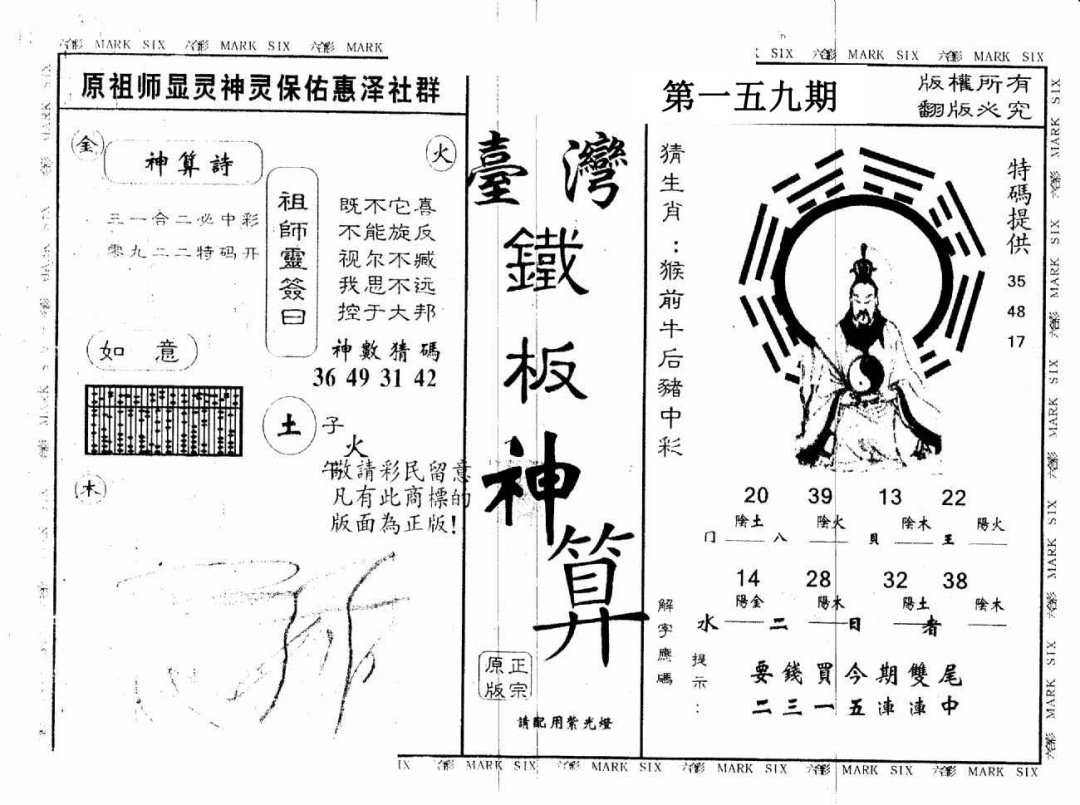 六合彩 MARK SIX 六合彩 MARK SIX 六合彩 MARK
SIX 六合彩 MARK SIX 六合彩 MARK SIX
原祖师显灵神灵保佑惠泽社群
第一五九期
版權所有
翻版必究
金
神算詩
火
三一合二必中彩
零九二二特码开
祖師靈簽曰
既不它喜
不能旋反
视尔不臧
我思不远
控于大邦
神數猜碼
36 49 31 42
如意
土
子
火
木
敬請彩民留意
凡有此商標的
版面為正版!
臺灣
鐵板神算
正宗
原版
請配用紫光燈
猜生肖:猴前牛后豬中彩
特碼提供
35
48
17
20 39 13 22
陰土 陰火 陰木 陽火
门 八 貝 王
14 28 32 38
陽金 陽木 陽土 陰木
水 二 日 者
解字應碼
提示:
要錢買今期雙尾
二三一五連連中
IX 六合彩 MARK SIX 六合彩 MARK SIX 六合彩 MARK SIX 六合彩 MARK SIX 六合彩 MARK SIX